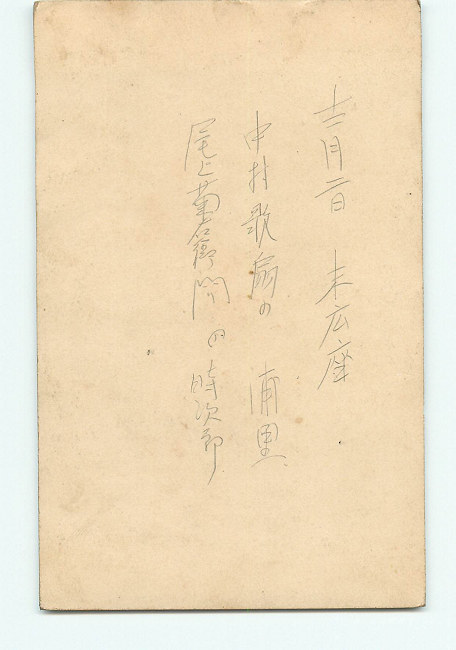 十二月二日 末広座
中村歌扇の 浦里
尾上菊右衛門の時次郎